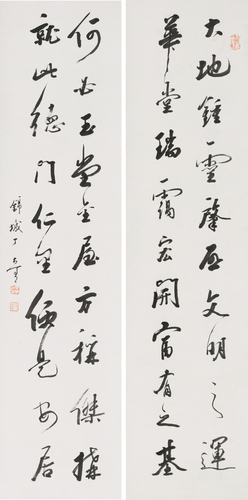 大地鍾靈肇啟文明之運
華堂瑞靄宏開富有之基
何必玉堂金屋方稱傑搆
就此德門仁里便是安居
錦城丁